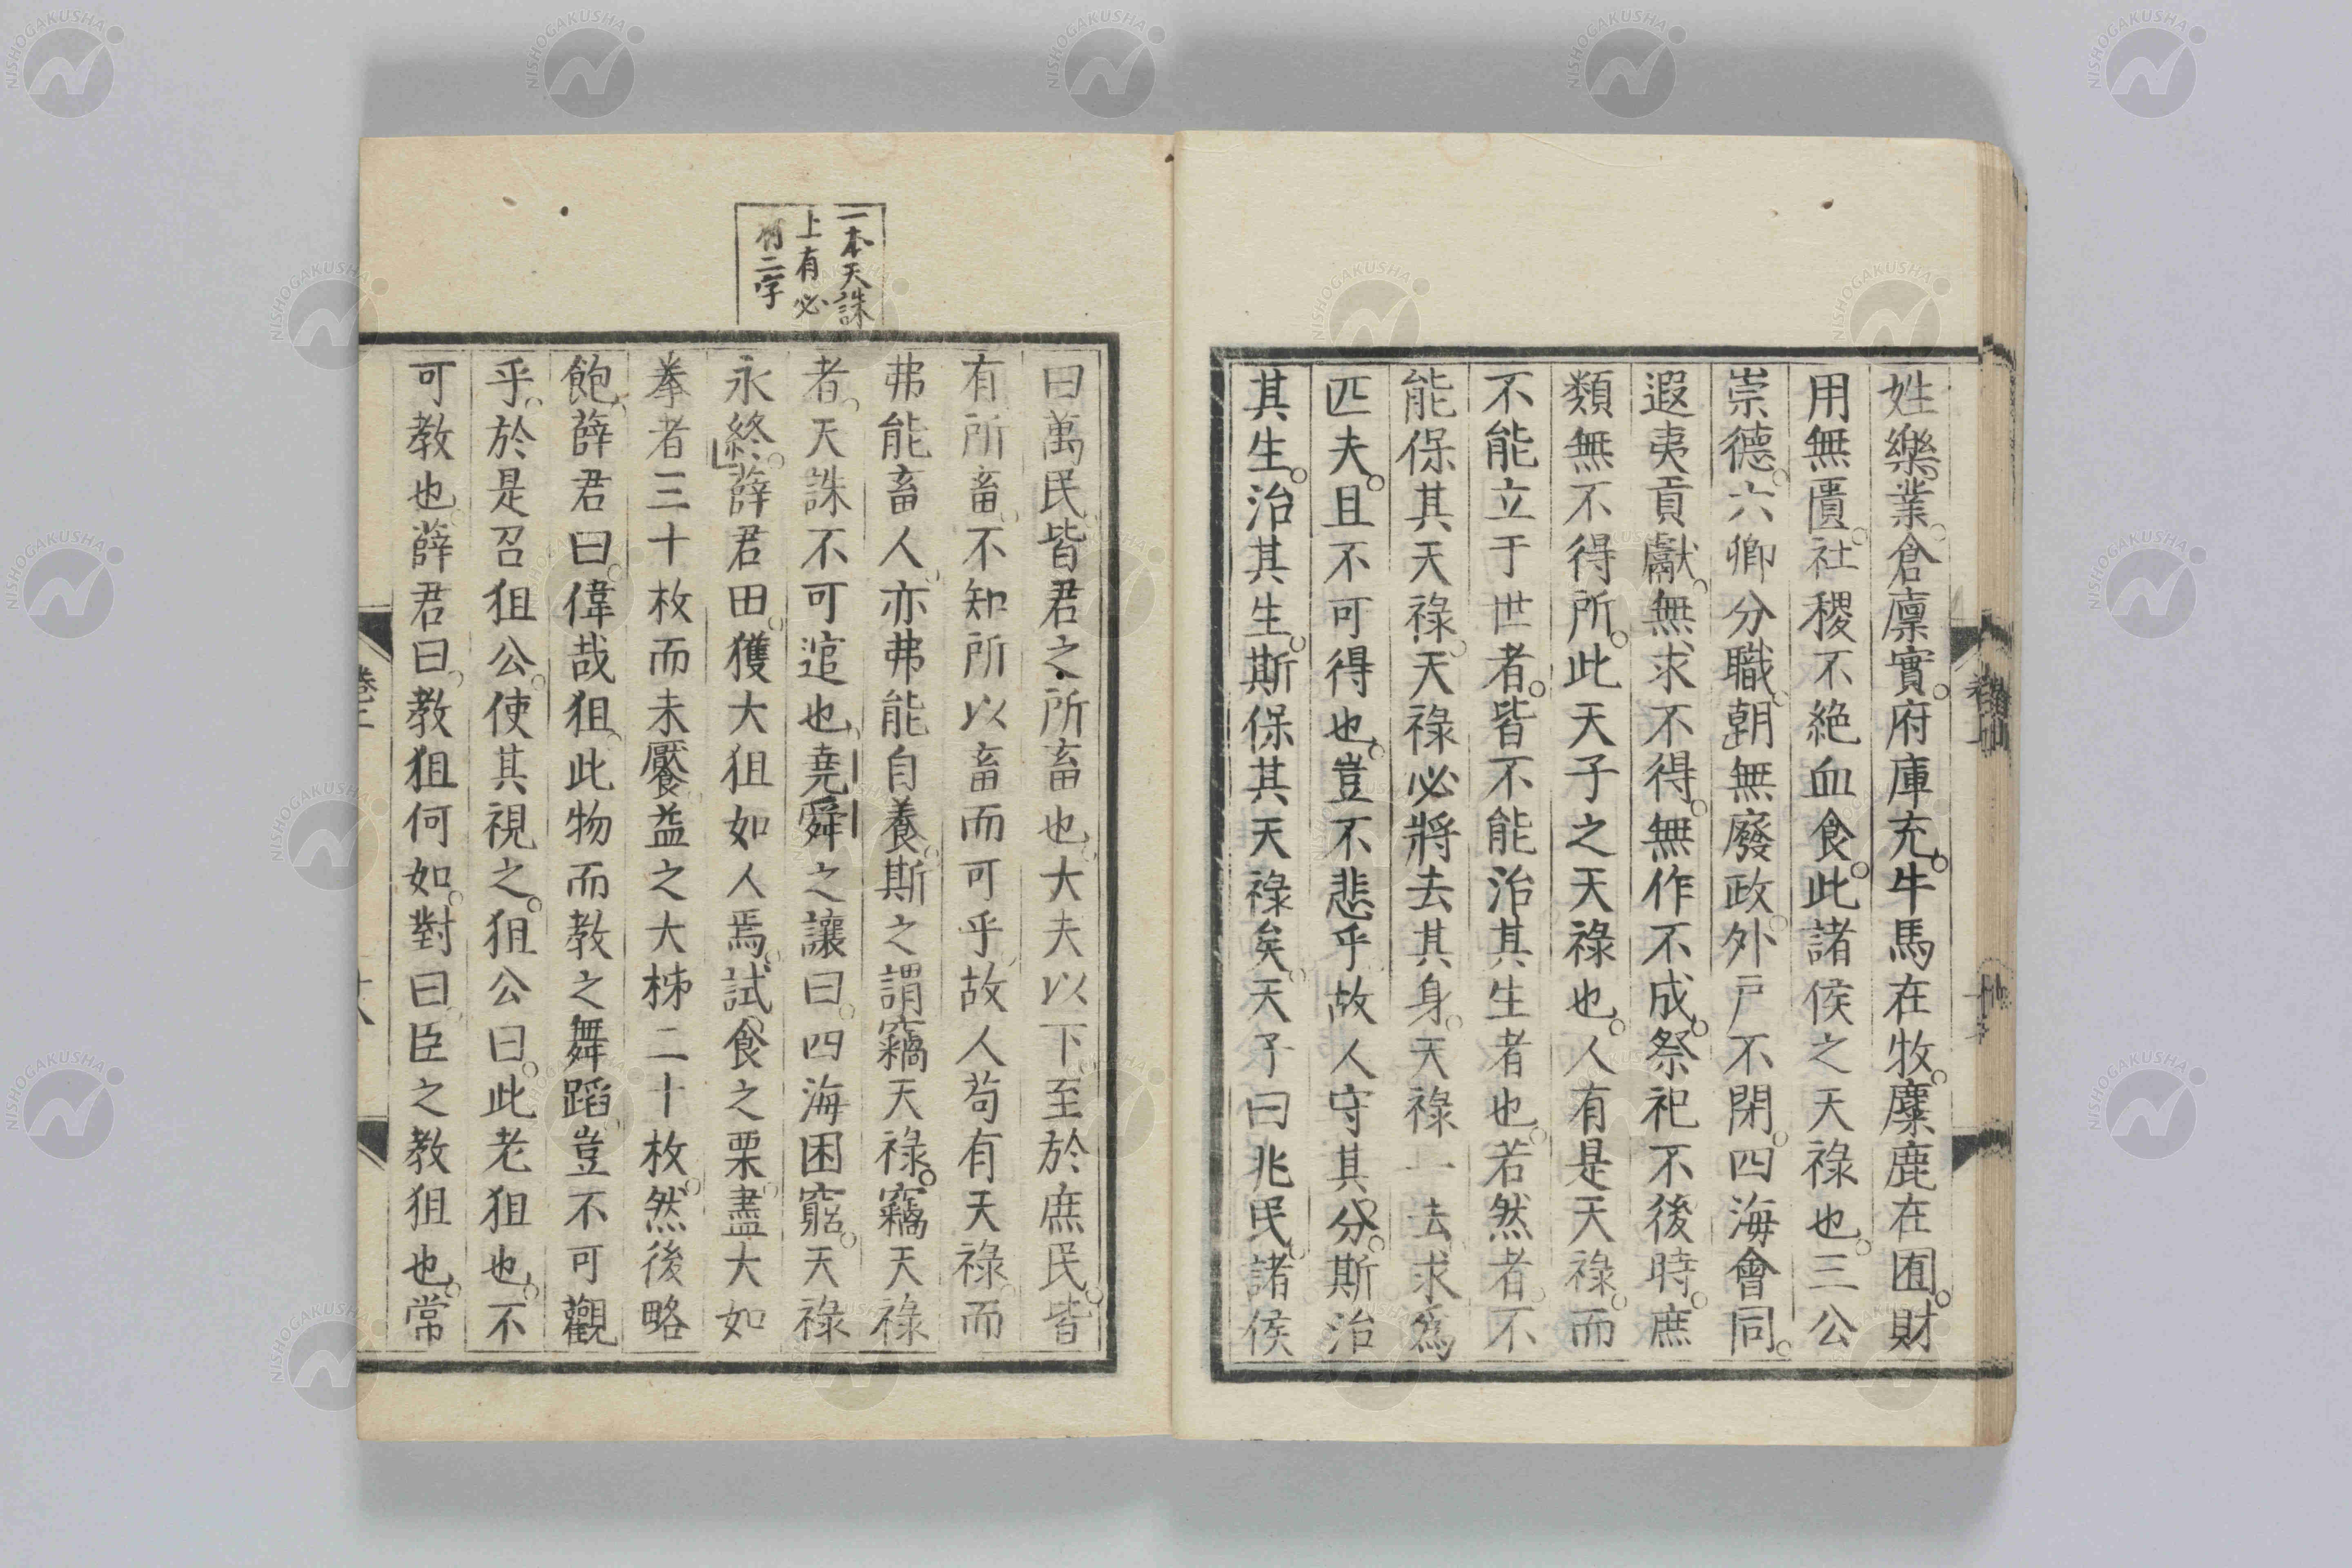 姓樂業。倉廩實。府庫充。牛馬在牧。麋鹿在囿。財
用無匱。社稷不絶血食。此諸侯之天祿也。三公
崇德。六卿分職。朝無廢政。外戸不閉。四海會同。
遐夷貢獻。無求不得。無作不成。祭祀不後時。庶
類無不得所。此天子之天祿也。人有是天祿。而
不能立于世者。皆不能治其生者也。若然者。不
能保其天祿。天祿必將去其身。天祿一去。求爲
匹夫。且不可得也。豈不悲乎。故人守其分。斯治
其生。治其生。斯保其天祿矣。天子曰兆民。諸侯
一本天誅
上有必
有二字
曰萬民。皆君之所畜也。大夫以下至於庶民。皆
有所畜。不知所以畜而可乎。故人苟有天祿。而
弗能畜人。亦弗能自養。斯之謂竊天祿。竊天祿
者。天誅不可逭也。堯舜之讓曰。四海困窮。天祿
永終。薛君田。獲大狙如人焉。試食之栗。盡大如
拳者三十枚而未饜。益之大柹二十枚。然後略
飽。薛君曰。偉哉狙。此物而教之舞蹈。豈不可觀
乎。於是召狙公。使其視之。狙公曰。此老狙也。不
可教也。薛君曰。教狙何如。對曰。臣之教狙也。常
卷三
NISHOGAKUSHA